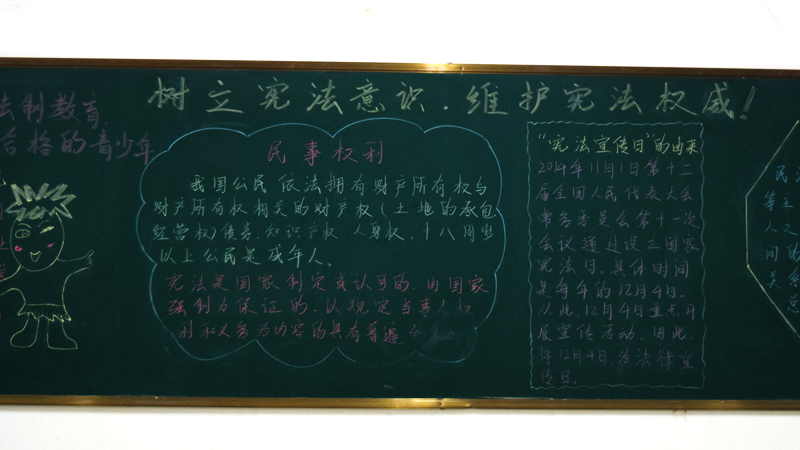 树立宪法意识.维护宪法权威!
法制教育,
合格的青少年
民事权利
我国公民依法拥有财产所有权与
财产所有权相关的财产权(土地的承包
经营权)债券.知识产权.人身权.十八周岁
以上公民是成年人。
宪法是国家制定或认可的.由国家
强制力保证的.以规定当事人权
利和义务为内容的具有普遍
"宪法宣传日"的由来
2014年11月1日第十二
届全国人民代表大会
常务委员会第十一次
会议通过设立国家
宪法日.具体时间
是每年的12月4日.
从此,12月4日重点开
展宣传活动.因此.
将12月4日.为法律宣
传日.
民
等主
人之的
间
关总